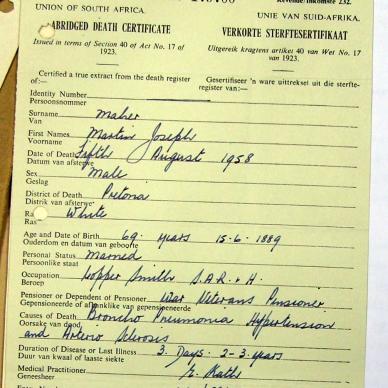 Revenue/Inkomste 232.
UNION OF SOUTH AFRICA. UNIE VAN SUID-AFRIKA.
ABRIDGED DEATH CERTIFICATE VERKORTE STERFTESERTIFIKAAT
Issued in terms of Section 40 of Act No. 17 of 1923. Uitgereik kragtens artikel 40 van Wet No. 17 van 1923.
Certified a true extract from the death register of:— Gesertifiseer 'n ware uittreksel uit die sterfte-register van:—
Identity Number
Persoonsnommer
Surname Maher
Van
First Names Martin Joseph
Voorname
Date of Death Fifth August 1958
Datum van afsterwe
Sex Male
Geslag
District of Death Pretoria
Distrik van afsterwe
Race White
Ras
Age and Date of Birth 69 years 15-6-1889
Ouderdom en datum van geboorte
Personal Status Married
Persoonlike staat
Occupation Copper Smith S.A.R. & H.
Beroep
Pensioner or Dependent of Pensioner War Veterans Pensioner
Gepensioneerde of afhanklike van gepensioneerde
Causes of Death Broncho Pneumonia Hypertension
Oorsake van dood and Arterio Sclerosis
Duration of Disease or Last Illness 3 Days. 2-3 years
Duur van kwaal of laaste siekte
Medical Practitioner
Geneesheer